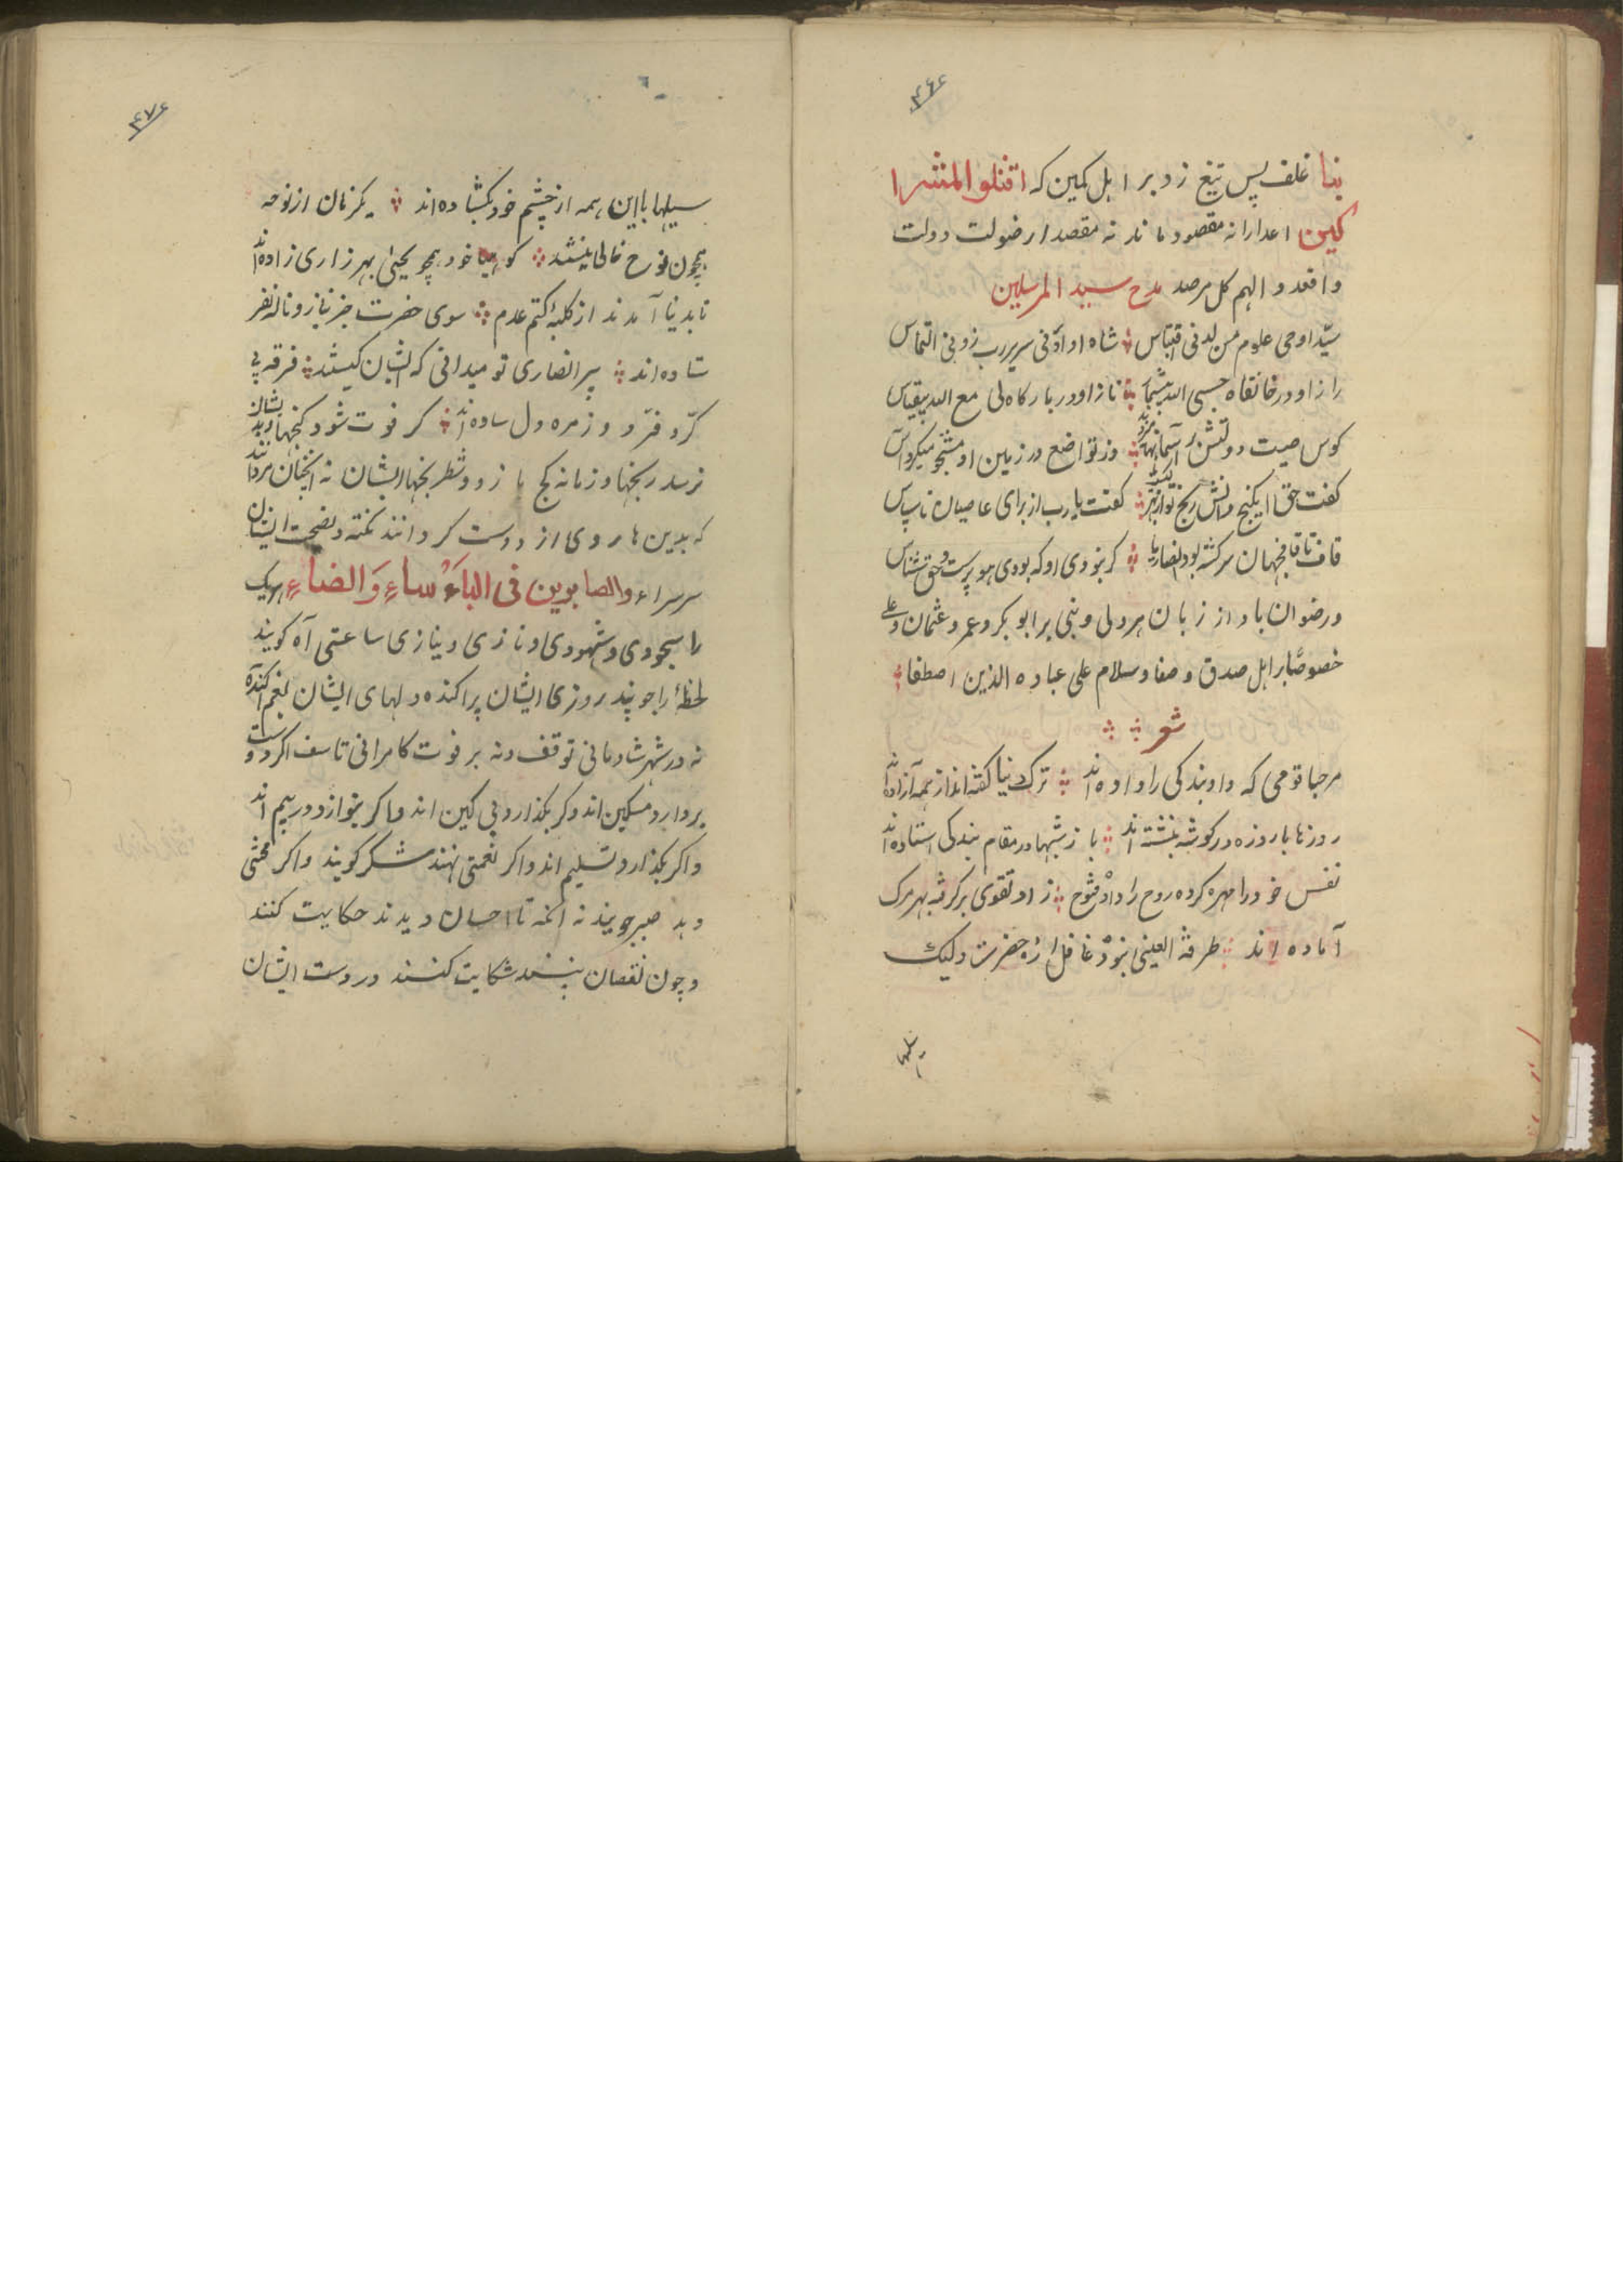 ۴۶۶
بنا غلف پس تیغ زد بر اهل کمین که اقتلو المشرا
کین اعدا را نه مقصود ماند نه مقصد از ضولت دولت
واقعد و الهم کل مرصد مدح سید المرسلین
سید اوحی علوم من لدنی اقتباس شاه او ادنی سریر رب زدنی التماس
راز او در خانقاه حسبی الله بیشمار ناز او در بارکاه لی مع الله بیقیاس
کوس صیت دولتش بر آسمانها میزدند وز تواضع در زمین او مشتجو میکرد آس
کفت حق ای کنج دانش رنج تو از بهر کیست کفت یا رب از برای عاصیان ناسپاس
قاف تا قاف جهان سرکشته بود انصاریا کر نبودی او که بودی هو پرست و حق شناس
و رضوان باد از زبان هر ولی و نبی بر ابوبکر و عمر و عثمان و علی
خصوصًا بر اهل صدق و صفا و سلام علی عباده الذین اصطفا
شعر
مرحبا قومی که داد بندکی را داده اند ترک دنیا کفته اند از همه آزاده اند
روزها با روزه در کوشه بنشسته اند باز شبها در مقام بندکی استاده اند
نفس خود را مهره کرده روح را داده فتوح زاد تقوی برکرفته بهر مرک
آماده اند طرفة العینی نبوده غافل از حضرت ولیک
سیلها
۴۷۶
سیلها با این همه از چشم خود بکشاده اند یکزمان از نوحه
همچون نوح خالی نیستند کوییا خود همچو یحیی بهر زاری زاده اند
تا بدنیا آمدند از کلبهٔ کتم عدم سوی حضرت جز نیاز و ناله نفر
ستاده اند پیر انصاری تو میدانی که ایشان کیستند فرقه بی
کرّ و فرّ و زمره دل ساده اند کر فوت شود کنجها بدیشان
نرسد رنجها و زمانه کج بازد و شطرنجها ایشان نه آنچنان مردانند
که بدین ها روی از دوست کردانند نکته و نصیحت ایشان
سر سراء والصابرین فی الباَءْساءِ وَالضاءِ هریک
را سجودی و شهودی و نازی و نیازی ساعتی آه کویند
لحظهٔ راه جویند روزی ایشان پراکنده دلهای ایشان بغم آکنده
نه در شهر شادمانی توقف و نه بر فوت کامرانی تاسف اکر دوست
بردارد مسکین اند وکر بکذارد بی کین اند و اکر بنوازد در بیم اند
و اکر بکذارد تسلیم اند و اکر نعمتی نهند شکر کویند و اکر محنتی
دهد صبر جویند نه آنکه تا احسان دیدند حکایت کنند
و چون نقصان بینند شکایت کنند در دست ایشان